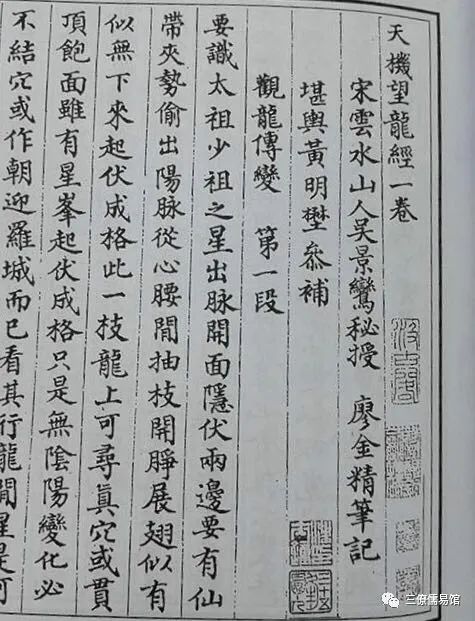 天機望龍經一卷
宋雲水山人吳景鸞秘授 廖金精筆記
堪輿黃明堃叅補
觀龍傳變 第一段
要識太祖少祖之星出脉開面隱伏兩邊要有仙
帶夾勢偷出陽脉從心腰間抽枝開睜展翅似有
似無下來起伏成格此一枝龍上可尋真穴或貫
頂飽面雖有星峯起伏成格只是無陰陽變化必
不結穴或作朝迎羅城而已看其行龍間星是
三僚儒易馆